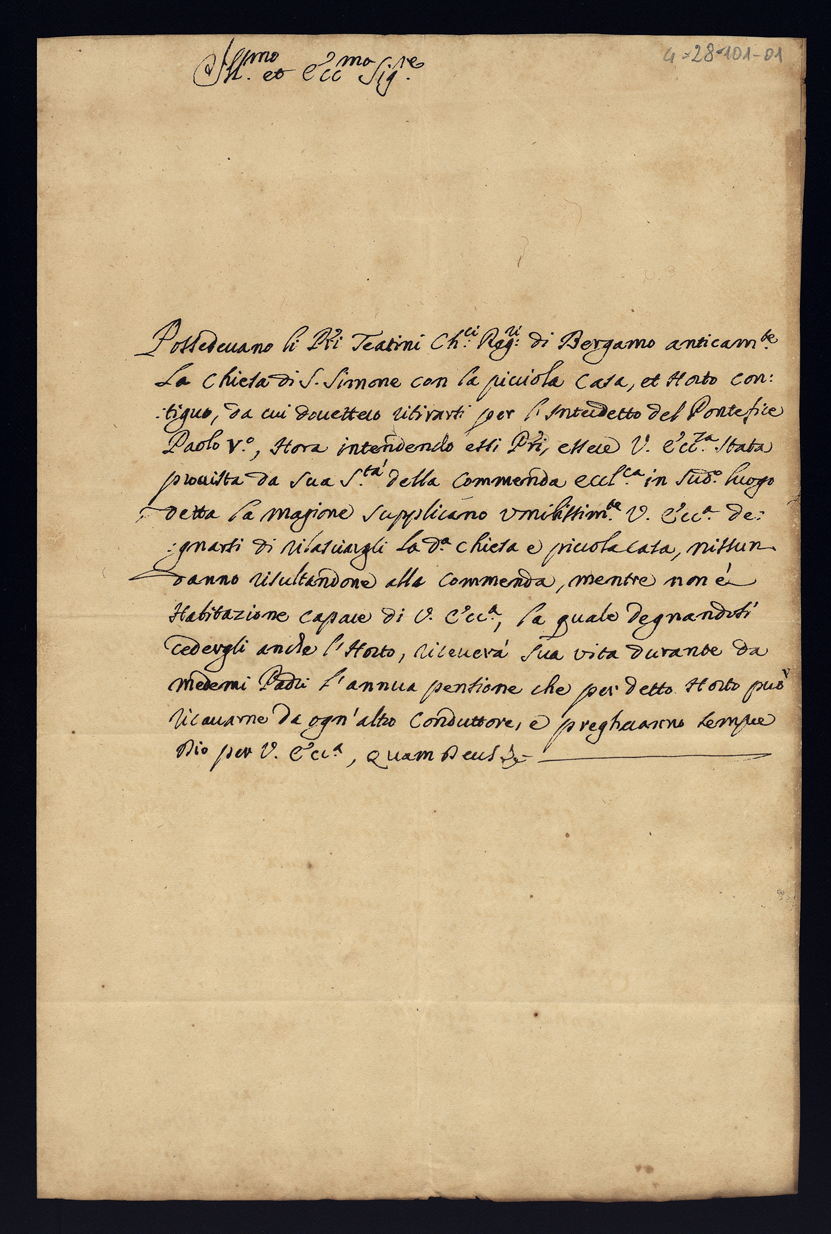 4-28-101-01
Ill.mo et Ecc.mo Sig.re
Possedeuano li Pri Teatini Ch.ci Reg.ri di Bergamo anticam.te
La Chiesa di S. Simone con la picciola Casa, et Horto con:
:tiguo, da cui douettero ritirarsi per l'Interdetto del Pontefice
Paolo V.o, Hora intendendo essi Pri, essere V. Ecc.za stata
prouista da sua S.tà della Commenda eccl.ca in sud.o luogo
detta la magione supplicano vmilissim.te V. Ecc.a de:
:gnarsi di rilasciargli La d.a Chiesa e picciola casa, nissun
danno risultandone alla Commenda, mentre non è
Habitazione capace di V. Ecc.a, la quale degnandosi
cedergli anche l'Horto, riceuerà sua vita durante da
medemi Padri l'annua pensione che per detto Horto può
ricauarne da ogn'altro Conduttore, e pregheranno sempre
Dio per V. Ecc.a, Quam Deus &c